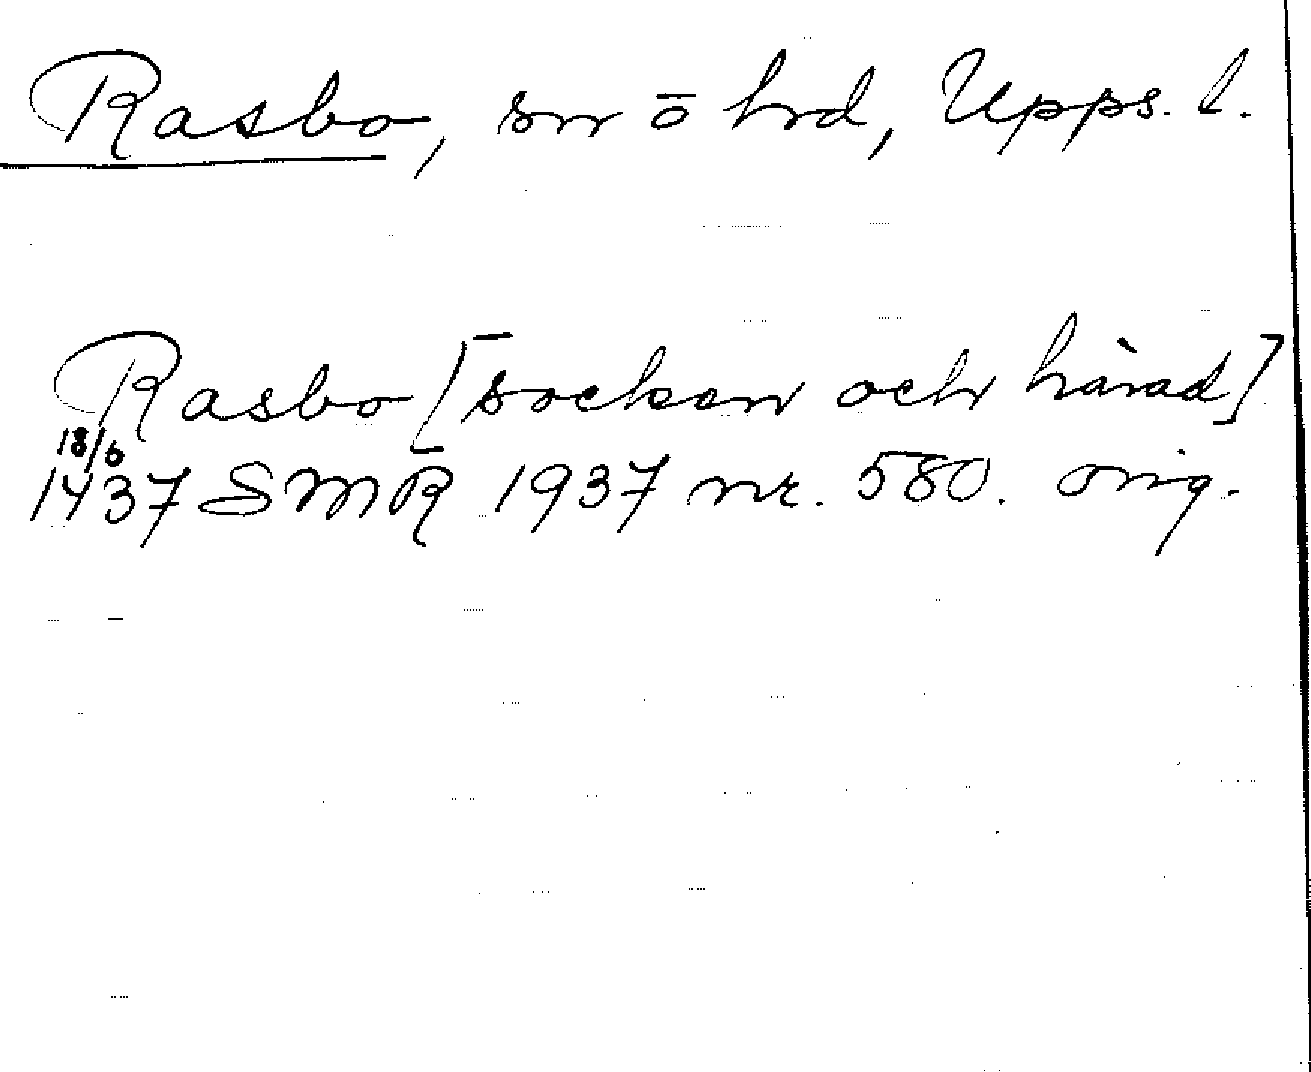 Rasbo, sn ō hrd, Upps. l.
Rasbo [socken och härad]
18/6
1437 SMR 1937 nr. 580. orig.